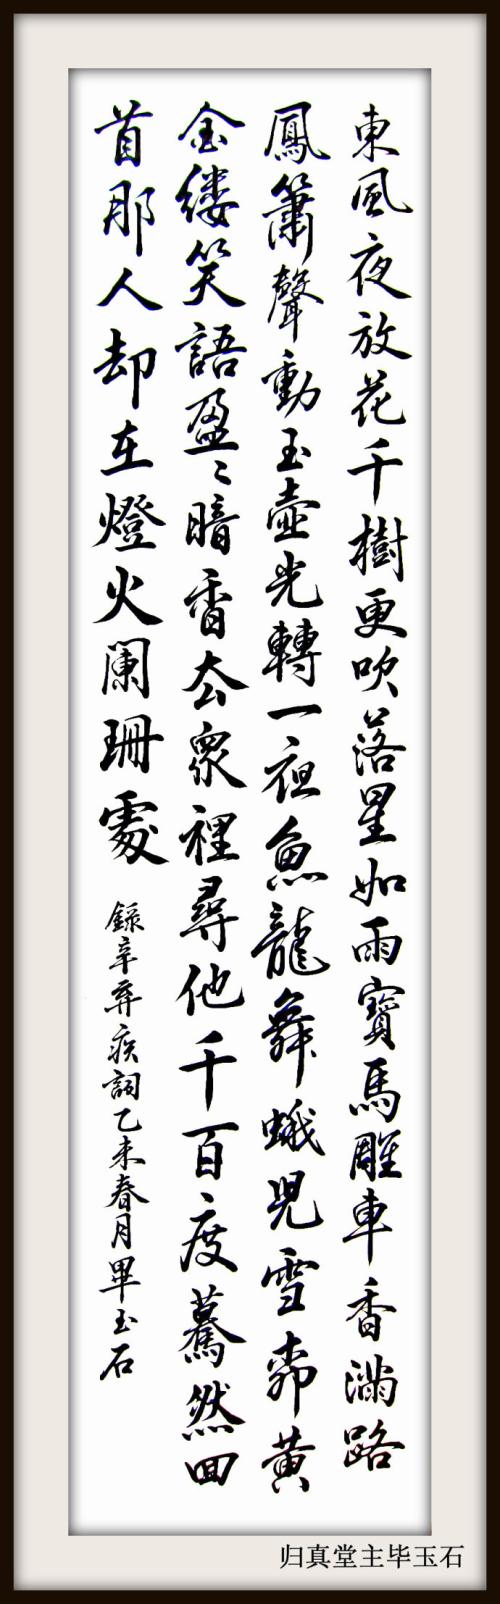 東風夜放花千樹更吹落星如雨寶馬雕車香滿路
鳳簫聲動玉壺光轉一夜魚龍舞蛾兒雪柳黃
金縷笑語盈〻暗香去眾裡尋他千百度驀然回
首那人却在燈火闌珊處
錄辛棄疾詞乙未春月畢玉石
归真堂主毕玉石